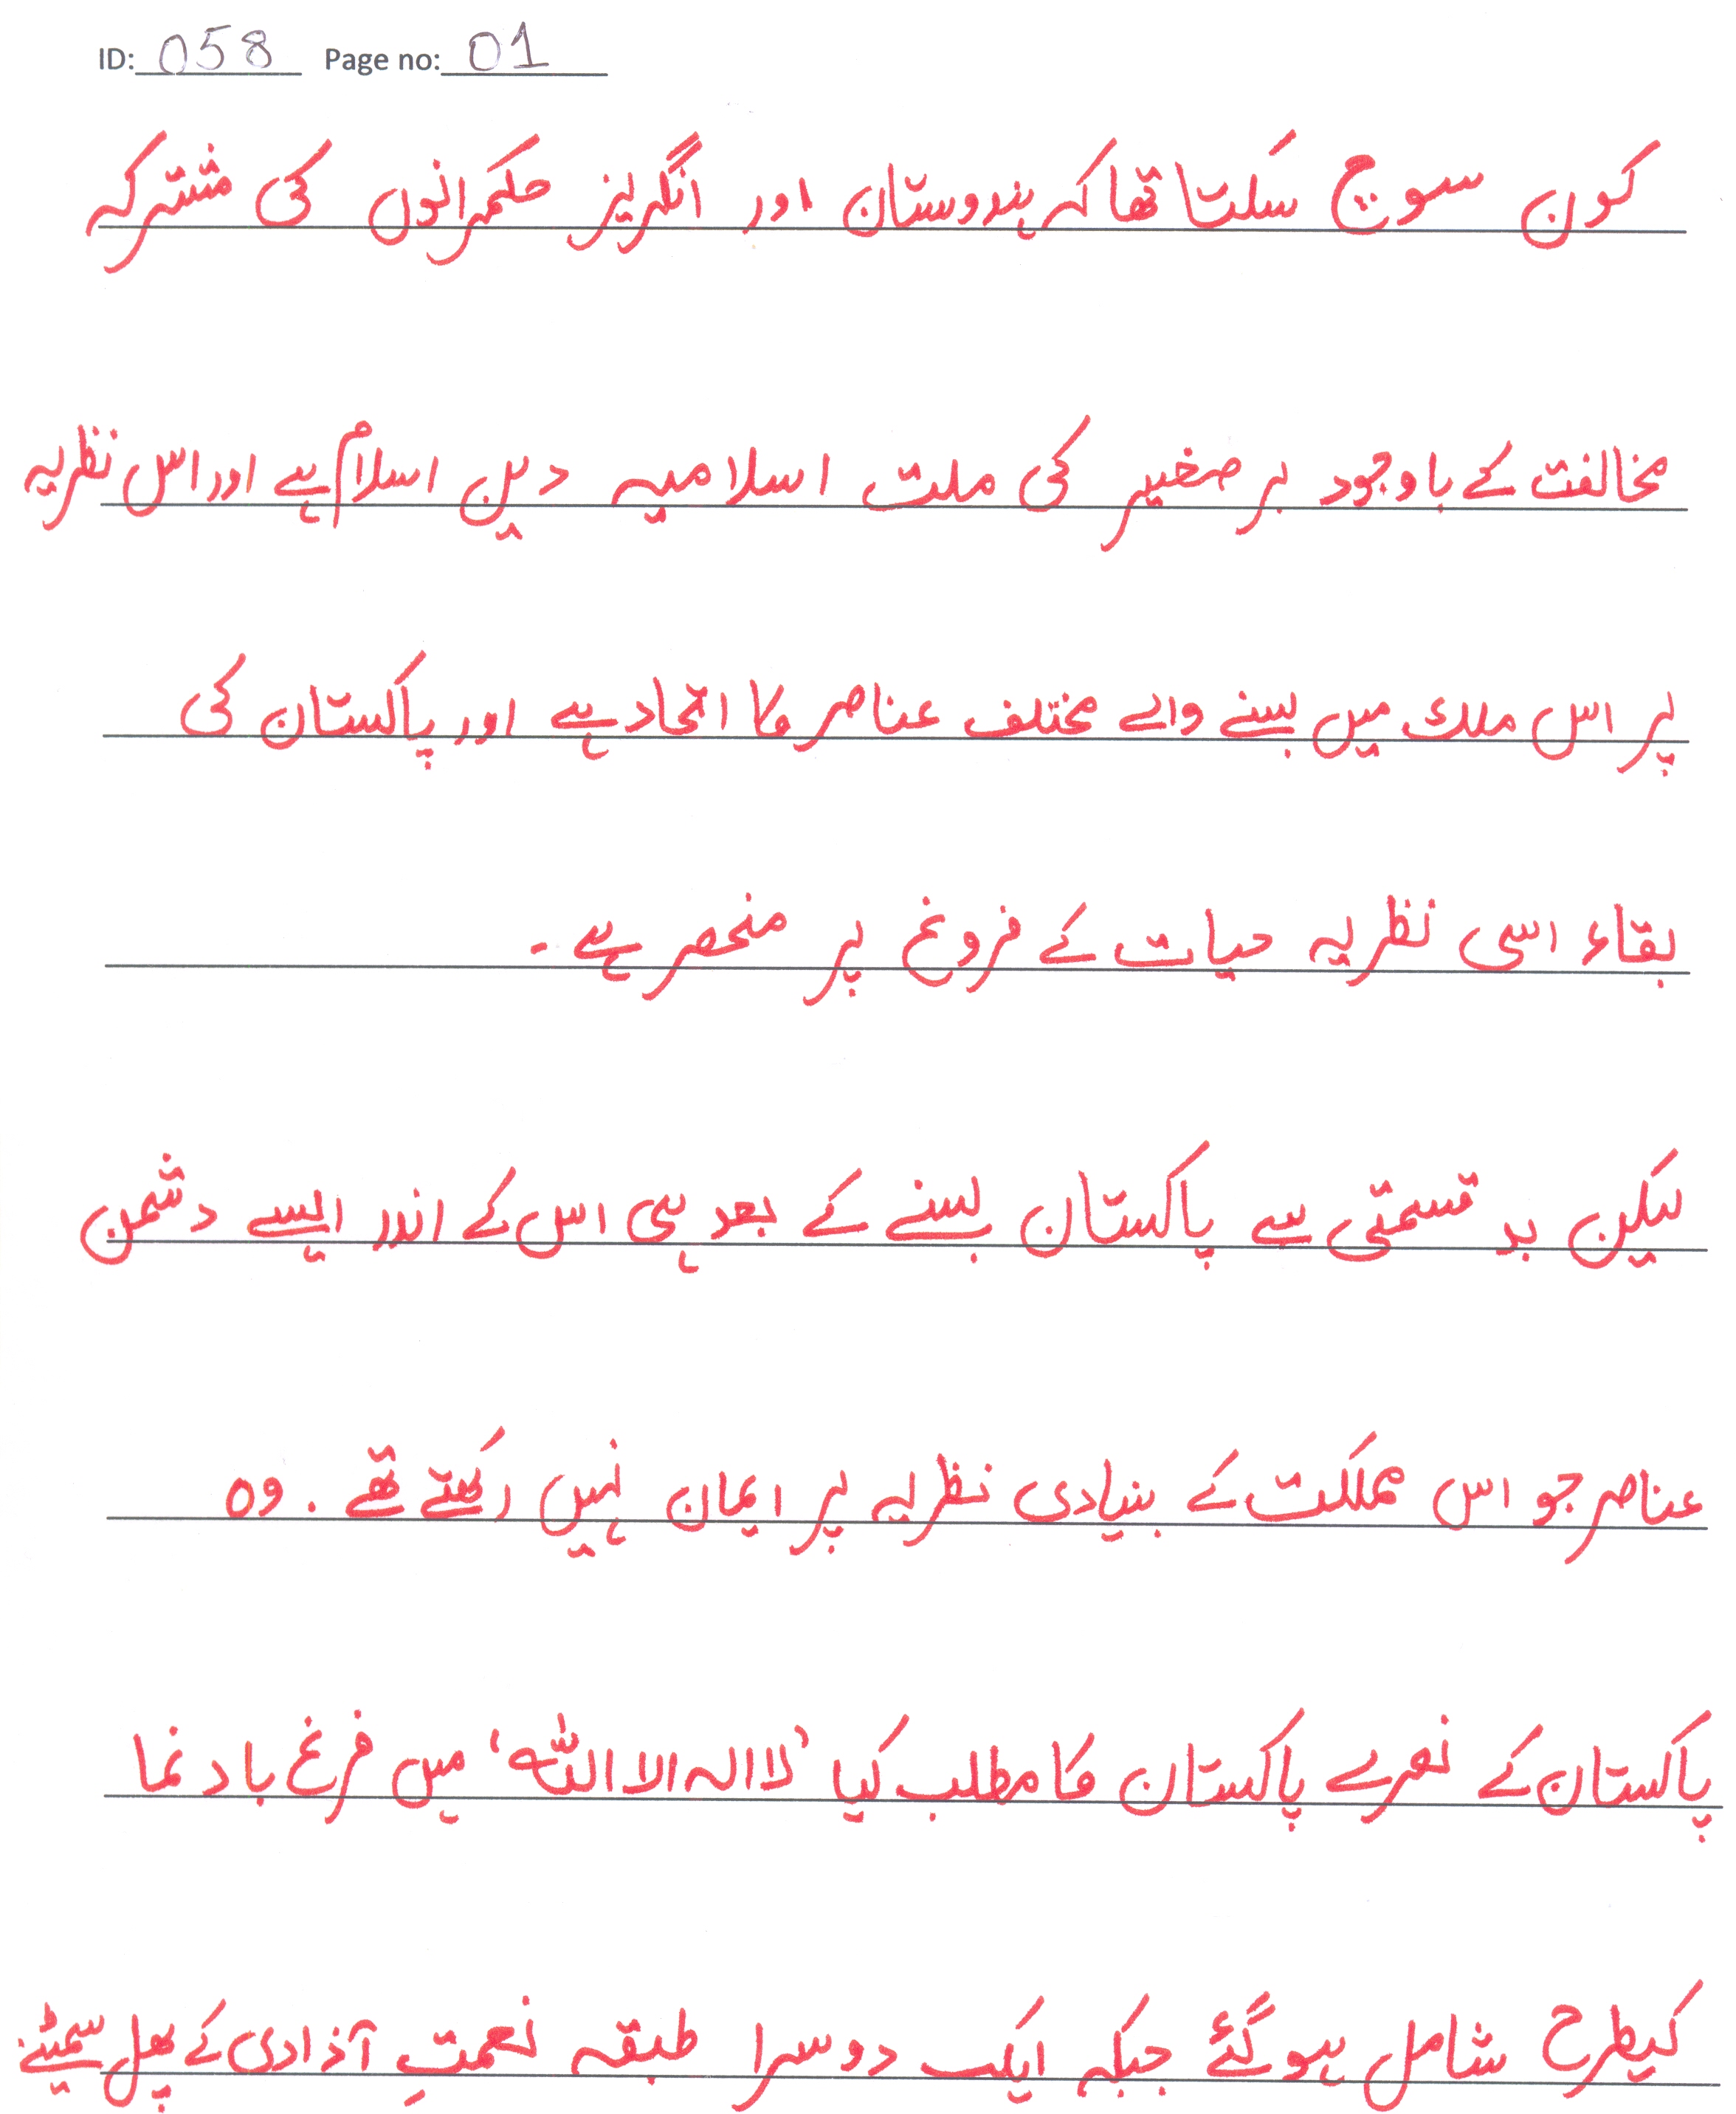 ID: 058 Page no: 01
کون سوچ سکتا تھا کہ ہندوستان اور انگریز حکمرانوں کی مشترکہ
مخالفت کے باوجود برصغیر کی ملت اسلامیہ دین اسلام ہے اور اس نظریہ
پر اس ملک میں بسنے والے مختلف عناصر کا اتحاد ہے اور پاکستان کی
بقاء اسی نظریہ حیات کے فروغ پر منحصر ہے ۔
لیکن بد قسمتی سے پاکستان بسنے کے بعد ہی اس کے اندر ایسے دشمن
عناصر جو اس مملکت کے بنیادی نظریہ پر ایمان نہیں رکھتے تھے . وہ
پاکستان کے نعرے پاکستان کا مطلب کیا ’لا الہ الا اللہ‘ میں فرغ باد نما
کیطرح شامل ہو گئے جبکہ ایک دوسرا طبقہ نعمتِ آذادی کے پھل سمیٹنے